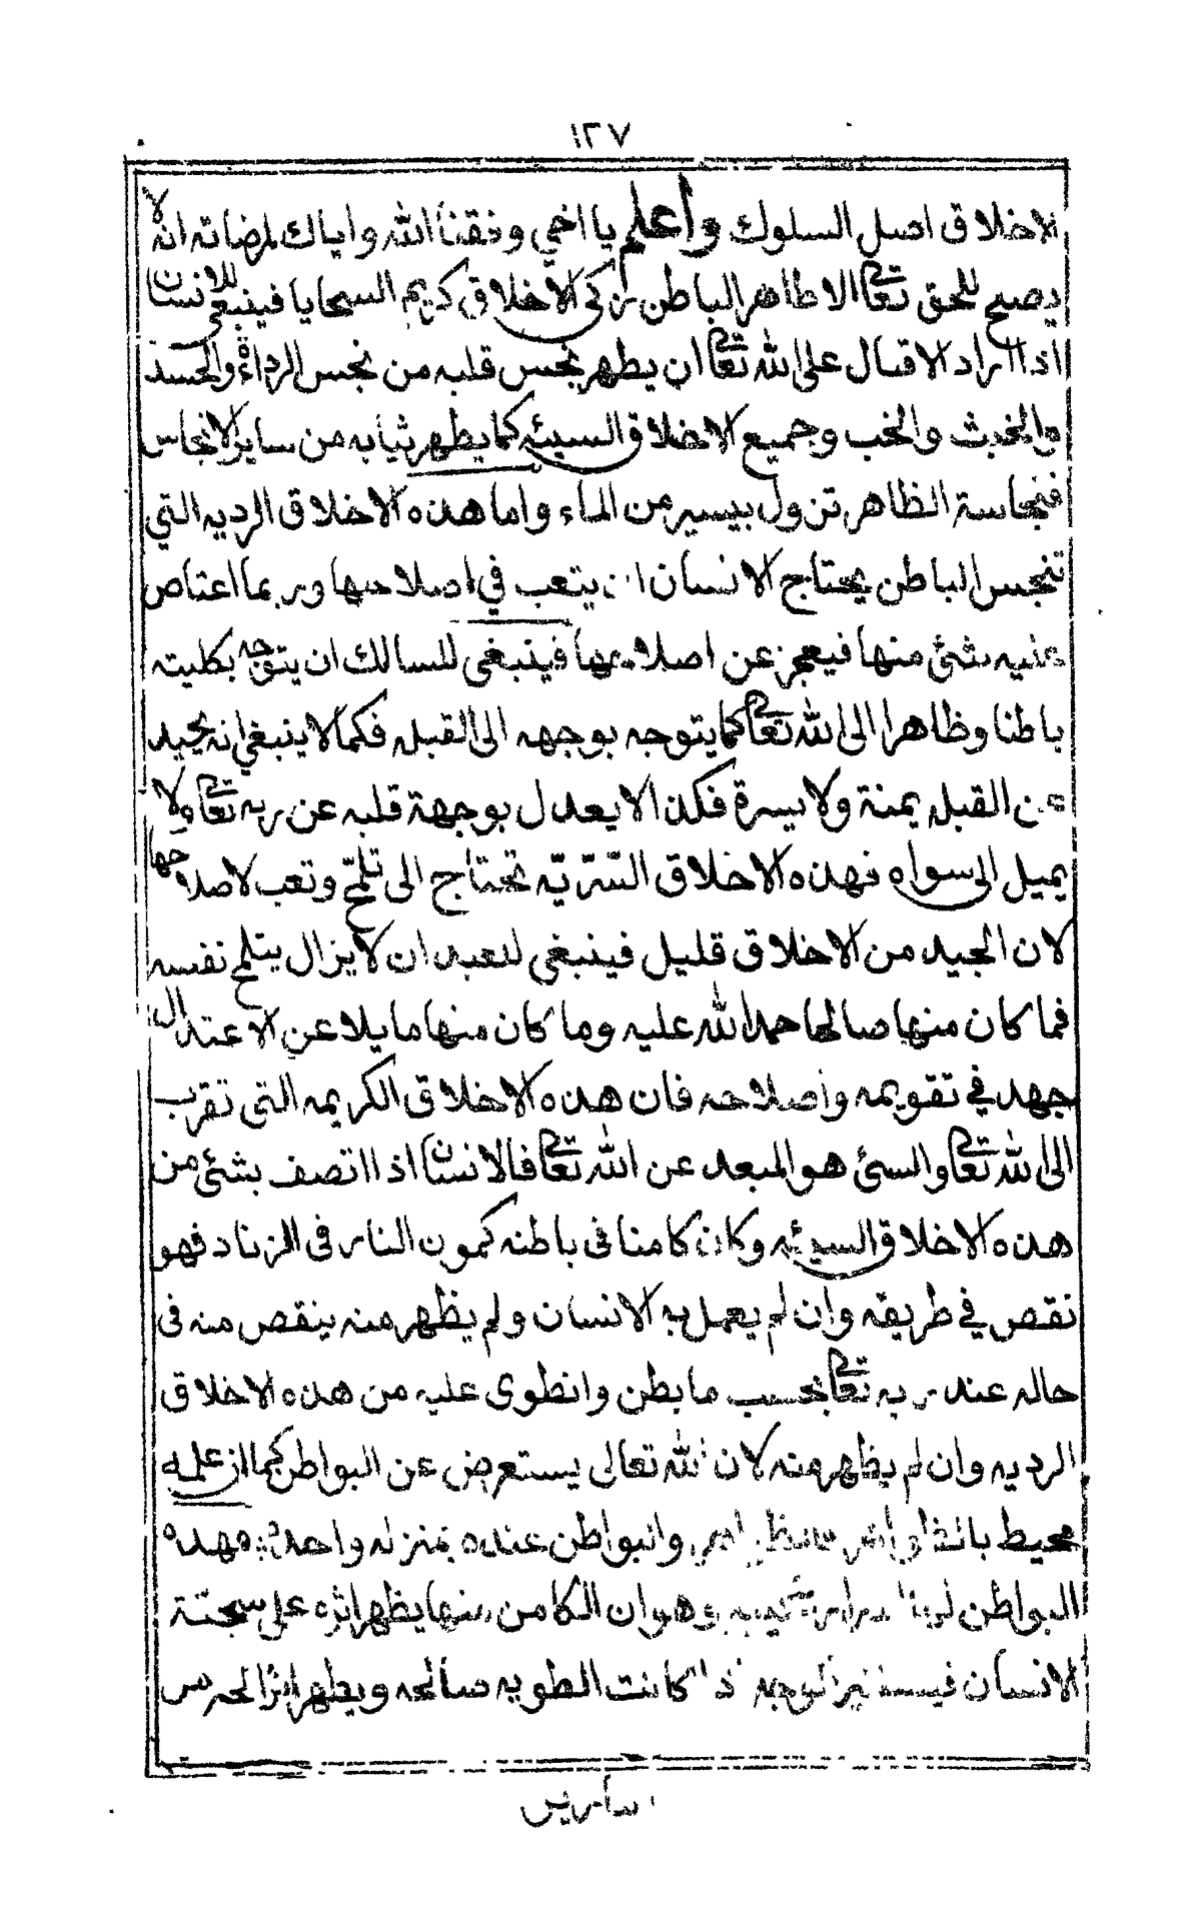 ١٢٧
الاخلاق اصل السلوك واعلم يا اخي وفقنا الله واياك لمرضاته انه لا
يصبح للحق تعالى الا طاهر الباطن زكي الاخلاق كريم السجايا فينبغي للانسان
اذا اراد الاقبال على الله تعالى ان يطهر نجس قلبه من نجس الرداءة والحسد
والخبث والخب وجميع الاخلاق السيئه كما يطهر ثيابه من ساير الانجاس
فنجاسة الظاهر تزول بيسير من الماء واما هذه الاخلاق الرديه التي
تنجس الباطن يحتاج الانسان ان يتعب في اصلاحها وربما اعتاص
عليه شئ منها فيعجز عن اصلاحها فينبغى للسالك ان يتوجه بكليته
باطنا وظاهرا الى الله تعالى كما يتوجه بوجهه الى القبله فكما لا ينبغي انه يحيد
عن القبله يمنة ولا يسرة فكذا لا يعدل بوجهة قلبه عن ربه تعالى ولا
يميل الى سواه فهذه الاخلاق السّرّيّه تحتاج الى تلمّح وتعب لاصلاحها
لان الجيد من الاخلاق قليل فينبغى للعبد ان لا يزال يتلمح نفسه
فما كان منها صالحا حمد الله عليه وما كان منها مايلا عن الاعتدال
جهد في تقويمه واصلاحه فان هذه الاخلاق الكريمه التى تقرب
الى الله تعالى والسئ هو المبعد عن الله تعالى فالانسان اذا اتصف بشئ من
هذه الاخلاق السيئه وكان كامنا فى باطنه كمون النار فى الزناد فهو
نقص في طريقه وان لم يعمل به الانسان ولم يظهر منه ينقص منه فى
حاله عند ربه تعالى بحسب ما بطن وانطوى عليه من هذه الاخلاق
الرديه وان لم يظهر منه لان الله تعالى يستعرض عن البواطن كما ان علمه
محيط بالظواهر والبواطن عنده بمنزله واحدة فهذه
البواطن لها وهو ان الكامن منها يظهر اثره على سجتة
الانسان الوجه اذا كانت الطويه صالحه ويظهر اثر الحرس
اسارير